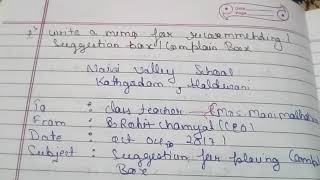 write a memo for recommending /
Suggestion box / Complain Box
Naini Valley School
Kathgodam, Haldwani
To : class teacher (Mrs. Mani malhotra
From : Rohit Chamyal (CEO)
Date :
Subject : Suggestion for placing Comp
Box